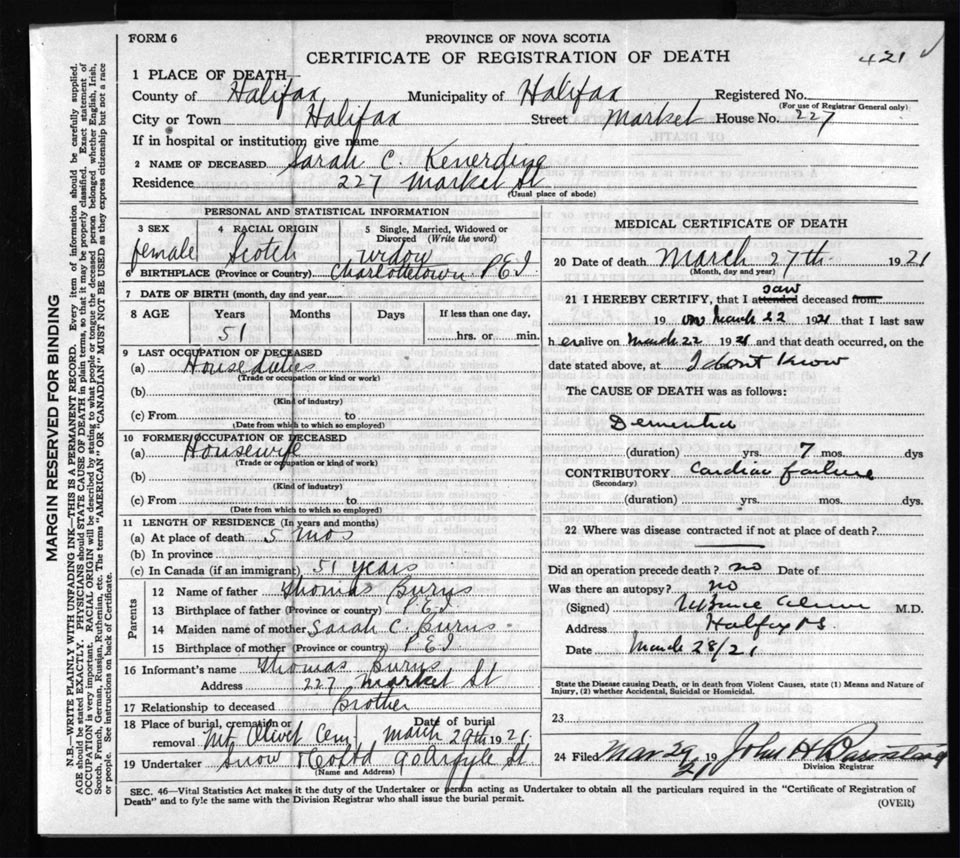 FORM 6
PROVINCE OF NOVA SCOTIA
CERTIFICATE OF REGISTRATION OF DEATH
421
1 PLACE OF DEATH—
County of Halifax Municipality of Halifax Registered No.
(For use of Registrar General only)
City or Town Halifax Street Market House No. 227
If in hospital or institution, give name
2 NAME OF DECEASED Sarah C. Kenerdine
Residence 227 Market St
(Usual place of abode)
PERSONAL AND STATISTICAL INFORMATION
3 SEX 4 RACIAL ORIGIN 5 Single, Married, Widowed or Divorced (Write the word)
female Scotch widow
6 BIRTHPLACE (Province or Country) Charlottetown P.E.I
7 DATE OF BIRTH (month, day and year)
8 AGE Years Months Days If less than one day,
51 hrs. or min.
9 LAST OCCUPATION OF DECEASED
(a) Houseduties
(Trade or occupation or kind or work)
(b)
(Kind of industry)
(c) From to
(Date from which to which so employed)
10 FORMER OCCUPATION OF DECEASED
(a) Housewife
(Trade or occupation or kind of work)
(b)
(Kind of industry)
(c) From to
(Date from which to which so employed)
11 LENGTH OF RESIDENCE (In years and months)
(a) At place of death 5 mos
(b) In province
(c) In Canada (if an immigrant) 51 years
Parents
12 Name of father Thomas Burns
13 Birthplace of father (Province or country) P.E.I
14 Maiden name of mother Sarah C. Burns
15 Birthplace of mother (Province or country) P.E.I
16 Informant's name Thomas Burns
Address 227 Market St
17 Relationship to deceased Brother
18 Place of burial, cremation or removal Mt Olivet Cem. Date of burial March 29th 1921
19 Undertaker Snow & Co Ltd 90 Argyle St.
(Name and Address)
MEDICAL CERTIFICATE OF DEATH
20 Date of death March 27th 1921
(Month, day and year)
saw
21 I HEREBY CERTIFY, that I attended deceased from
19 on March 22 1921 that I last saw
h er alive on March 22 1921 and that death occurred, on the
date stated above, at I dont know
The CAUSE OF DEATH was as follows:
Dementia
(duration) yrs. 7 mos. dys
CONTRIBUTORY Cardiac failure
(Secondary)
(duration) yrs. mos. dys.
22 Where was disease contracted if not at place of death?
Did an operation precede death? no Date of
Was there an autopsy? no
(Signed) M.D.
Address Halifax NS
Date March 28/21
State the Disease causing Death, or in death from Violent Causes, state (1) Means and Nature of
Injury, (2) whether Accidental, Suicidal or Homicidal.
23
24 Filed Mar 29 19 21 John H
Division Registrar
SEC. 46—Vital Statistics Act makes it the duty of the Undertaker or person acting as Undertaker to obtain all the particulars required in the "Certificate of Registration of
Death" and to fyle the same with the Division Registrar who shall issue the burial permit.
(OVER)
MARGIN RESERVED FOR BINDING
N.B.—WRITE PLAINLY WITH UNFADING INK—THIS IS A PERMANENT RECORD. Every item of information should be carefully supplied.
AGE should be stated EXACTLY. PHYSICIANS should STATE CAUSE OF DEATH in plain terms, so that it may be properly classified. Exact statement of
OCCUPATION is very important. RACIAL ORIGIN will be described by stating to what people or tongue the deceased person belonged whether English, Irish,
Scotch, French, German, Russian, Ruthenian, etc. The terms "AMERICAN" OR "CANADIAN" MUST NOT BE USED as they express citizenship but not a race
or people. See instructions on back of Certificate.